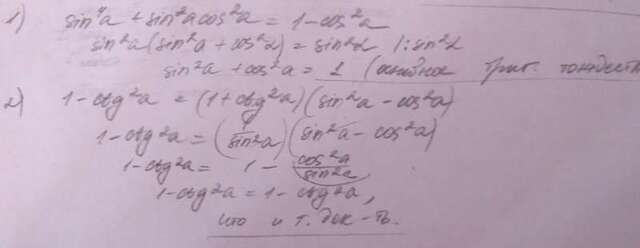 1) sin⁴a + sin²a cos²a = 1 - cos²a
sin²a (sin²a + cos²a) = sin²a /: sin²a
sin²a + cos²a = 1 (основное триг. тождеств
2) 1 - ctg²a = (1 + ctg²a) (sin²a - cos²a)
1 - ctg²a = (1/sin²a) (sin²a - cos²a)
1 - ctg²a = 1 - cos²a/sin²a
1 - ctg²a = 1 - ctg²a,
что и т. док-ть.